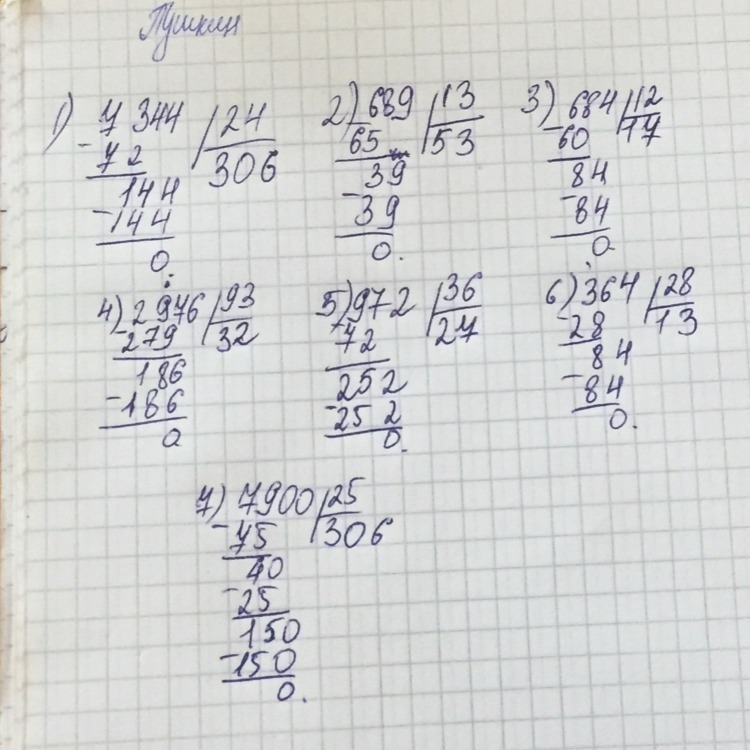 Пушкин
1) 7344 | 24
- 72 306
144
- 144
0
2) 689 | 13
65 53
39
- 39
0.
3) 684 | 12
- 60 17
84
- 84
0
4) 2976 | 93
- 279 32
186
- 186
0
5) 972 | 36
72 27
252
- 252
0.
6) 364 | 28
- 28 13
84
- 84
0.
7) 7900 | 25
- 75 306
40
- 25
150
- 150
0.